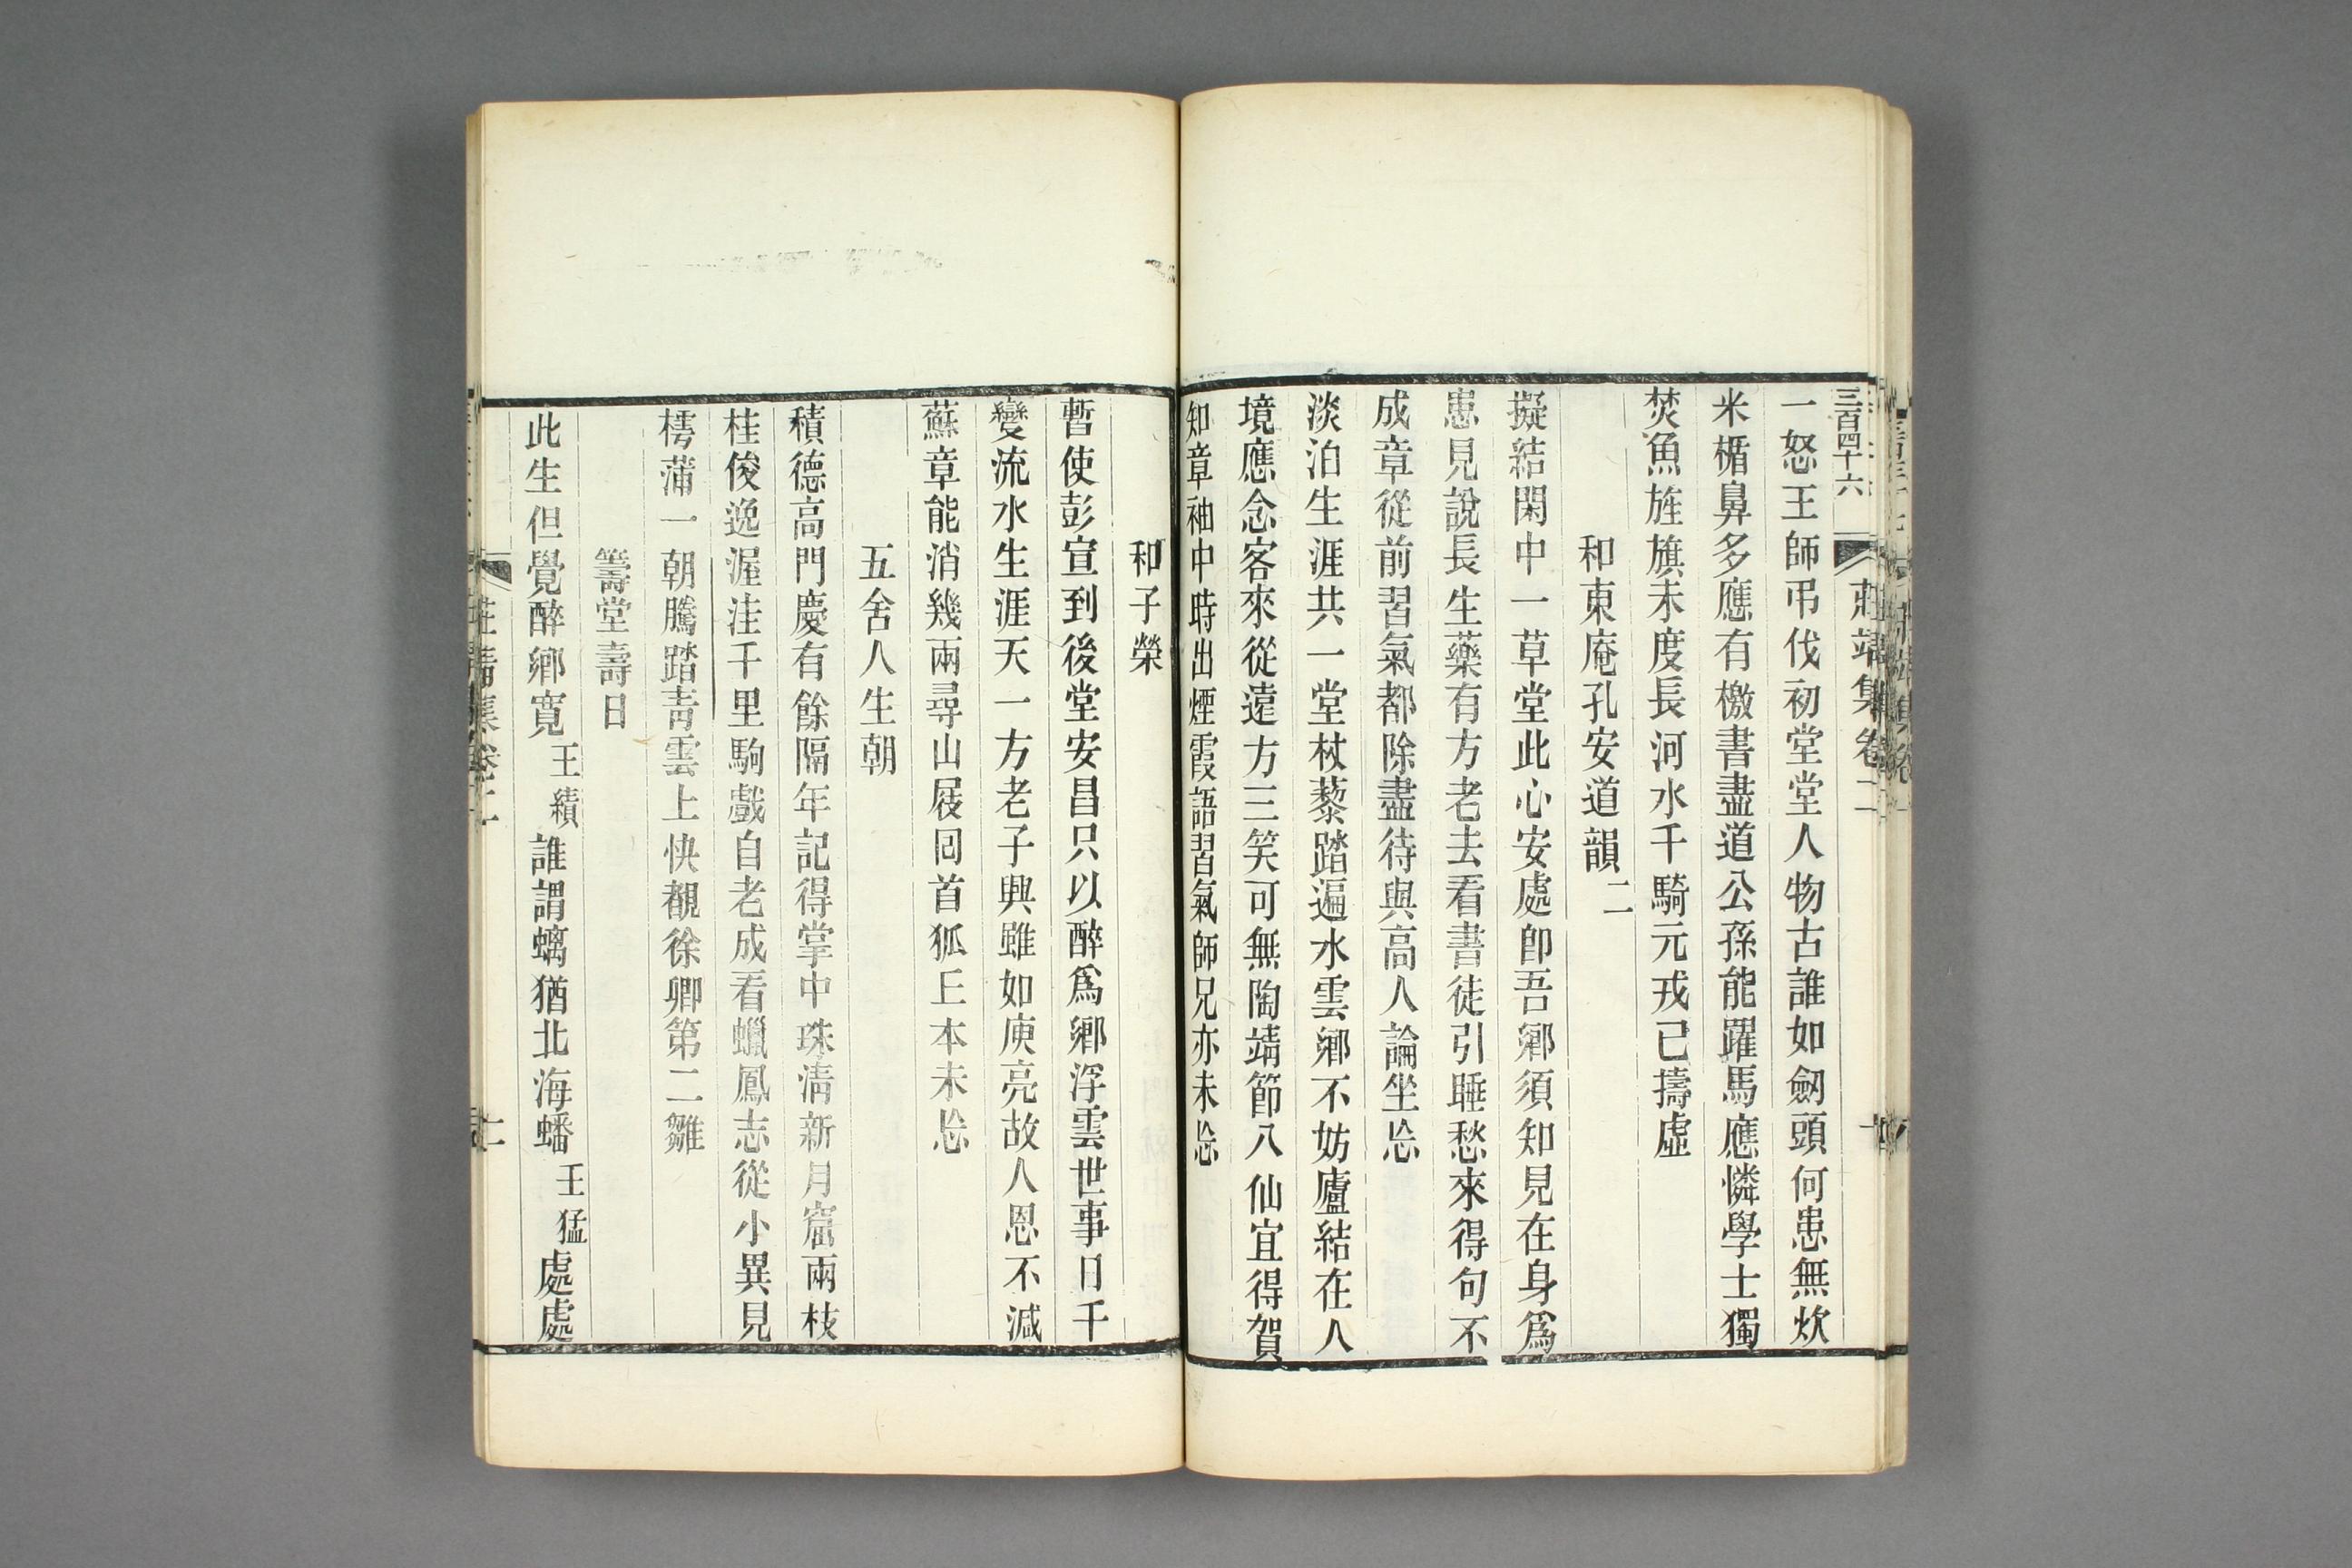 三百四十六 莊靖集卷二
一怒王師弔伐初堂堂人物古誰如劒頭何患無炊
米楯鼻多應有檄書盡道公孫能躍馬應憐學士獨
焚魚旌旗未度長河水千騎元戎已擣虛
和東庵孔安道韻二
擬結閑中一草堂此心安處卽吾鄉須知見在身爲
患見說長生藥有方老去看書徒引睡愁來得句不
成章從前習氣都除盡待與高人論坐忘
淡泊生涯共一堂杖藜踏遍水雲鄉不妨廬結在人
境應念客來從遠方三笑可無陶靖節八仙宜得賀
知章袖中時出煙霞語習氣師兄亦未忘
和子榮
暫使彭宣到後堂安昌只以醉爲鄉浮雲世事日千
變流水生涯天一方老子興雖如庾亮故人恩不減
蘇章能消幾兩尋山屐囘首狐丘本未忘
五舍人生朝
積德高門慶有餘隔年記得掌中珠淸新月窟兩枝
桂俊逸渥洼千里駒戲自老成看蠟鳳志從小異見
樗蒲一朝騰踏靑雲上快覩徐卿第二雛
籌堂壽日
此生但覺醉鄉寬王績誰謂螭猶北海蟠王猛處處
莊靖集卷二